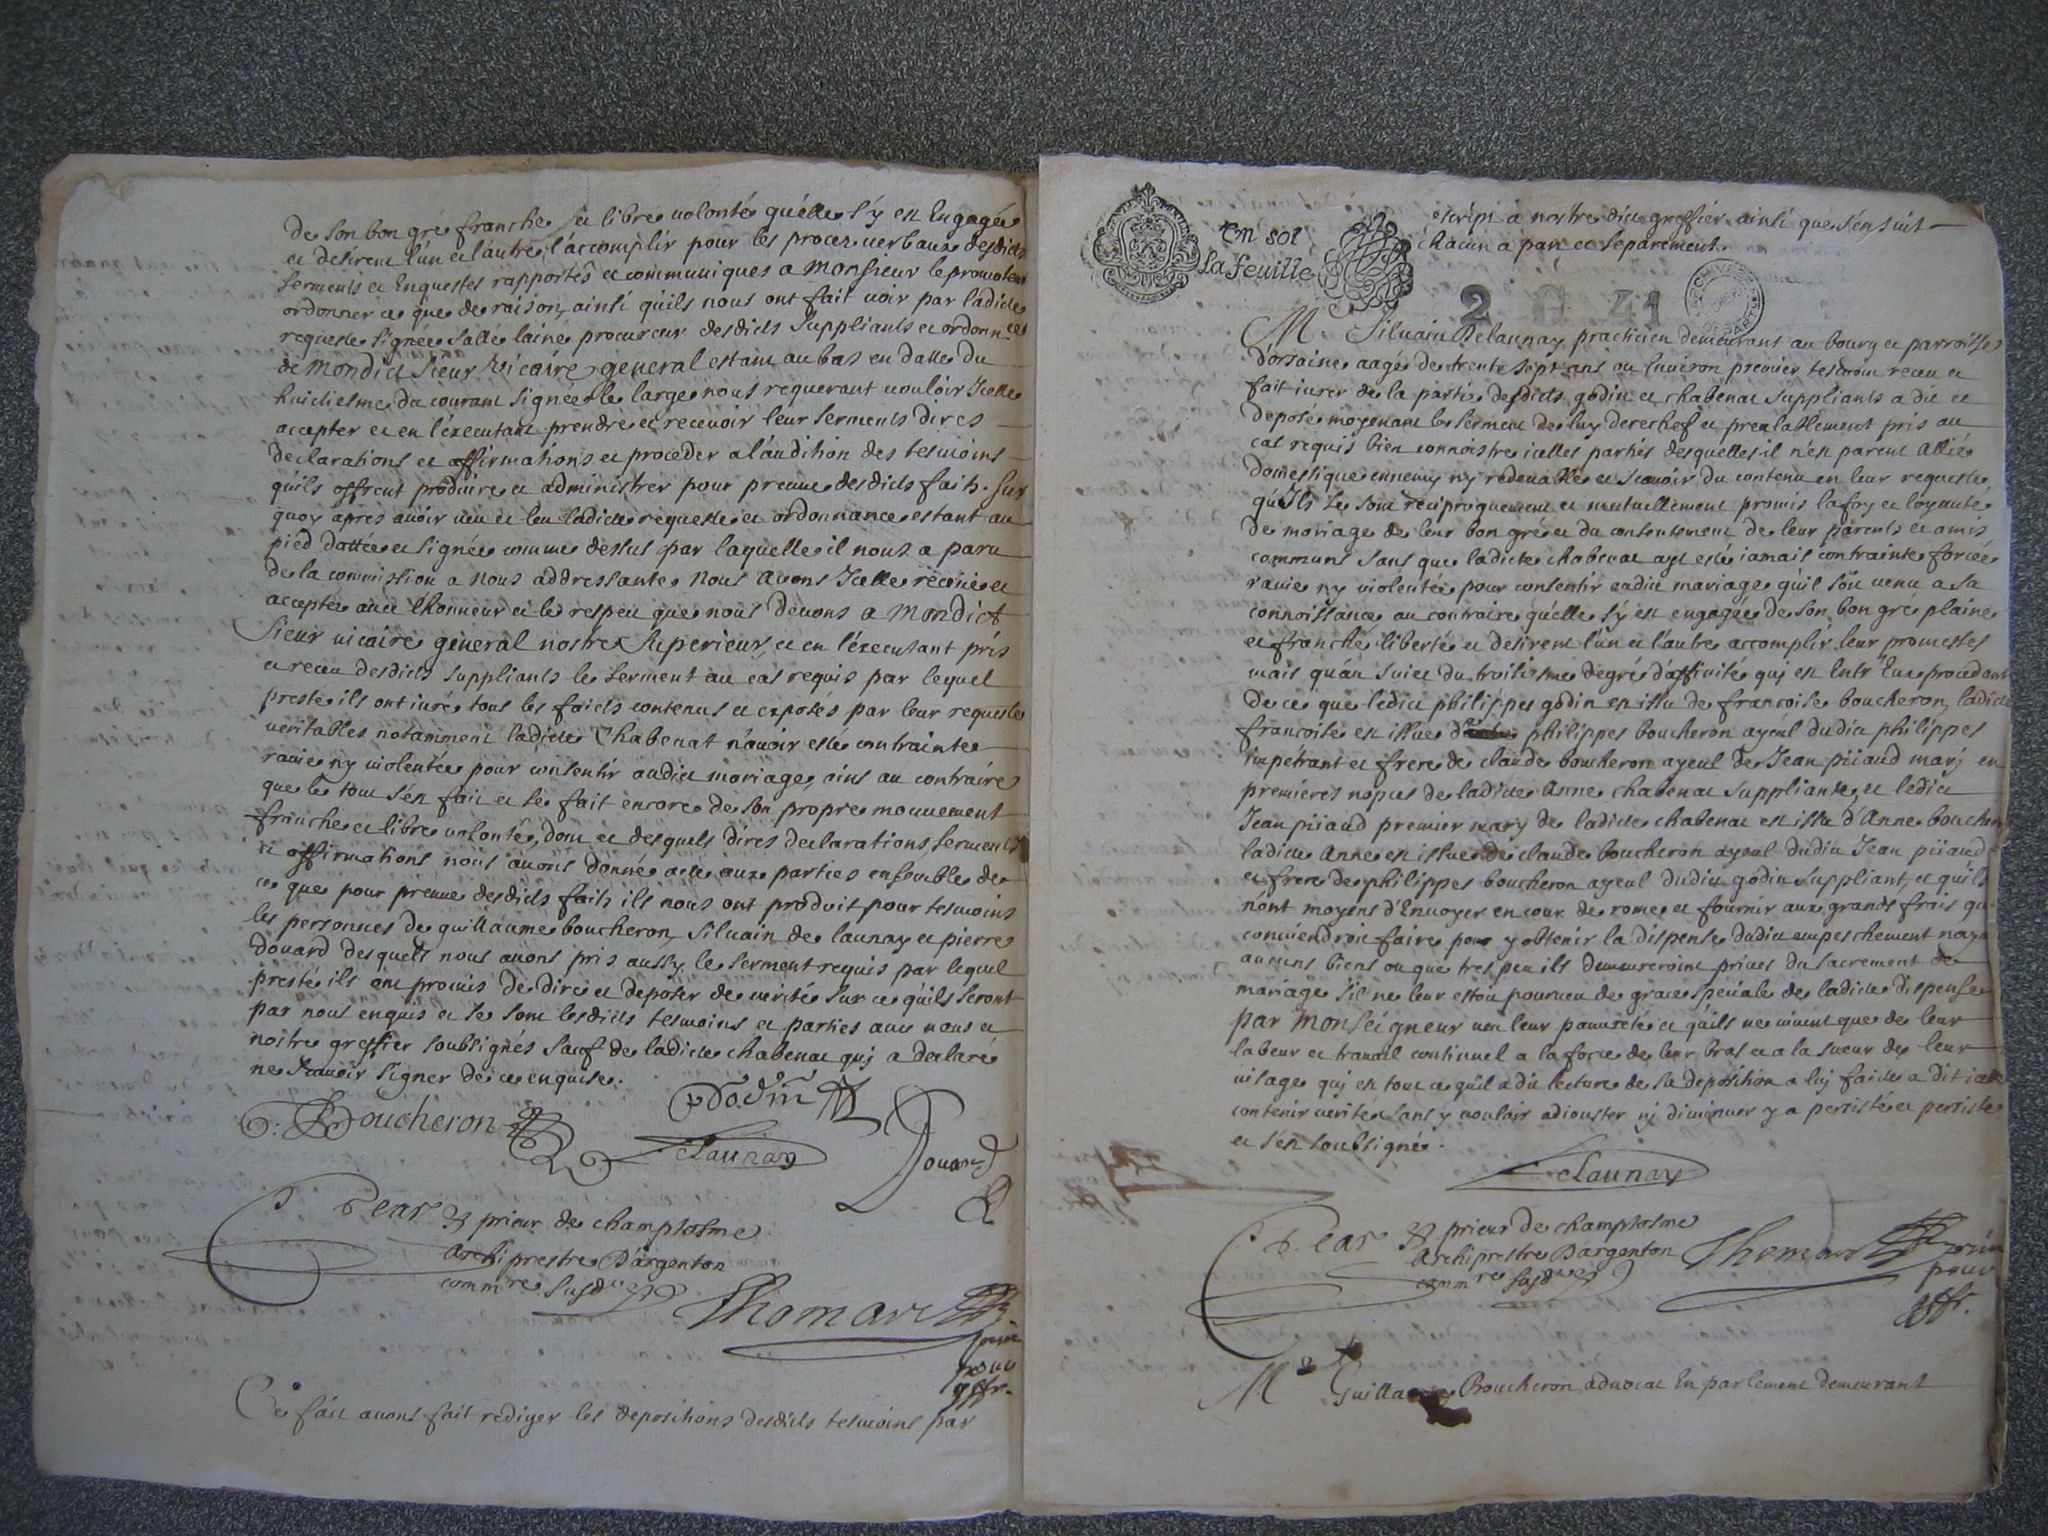 de son bon gré franche et libre volonté qu'elle s'y est Engagée
et desirent l'un et l'autre l'accomplir pour les procez verbaux desdicts
serments et Enquestes rapportés et communiques a Monsieur le promoteur
ordonner ce que de raison, ainsi qu'ils nous ont fait voir par ladicte
requeste signée Sallé laine procureur desdicts suppliants et ordonnce
de Mondict Sieur Vicaire general estant au bas en datte du
huictiesme du courant signée le large nous requerant vouloir Icelle
accepter et en l'executant prendre et recevoir leur serments dires
declarations et affirmations et proceder a l'audition des tesmoins
qu'ils offrent produire et administrer pour preuve desdicts faits. sur
quoy apres avoir veu et leu ladicte requeste et ordonnance estant au
pied dattée et signée comme dessus par laquelle il nous a paru
de la commission a nous addressante nous avons Icelle receue et
acceptée avec l'honneur et le respect que nous devons a Mondict
Sieur vicaire general nostre Superieur, et en l'executant pris
et receu desdicts suppliants le serment au cas requis par lequel
presté ils ont iuré tous les faicts contenus et exposés par leur requeste
veritables notamment ladicte Chabenat n'avoir esté contrainte
ravie ny violentée pour consentir audict mariage, ains au contraire
que le tout s'est fait et se fait encore de son propre mouvement
franche et libre volonté, dont et desquels dires declarations serments
et affirmations nous avons donné acte aux parties ensemble de
ce que pour preuve desdicts faits ils nous ont produit pour tesmoins
les personnes de guillaume boucheron, silvain de launay et pierre
Douard desquels nous avons pris aussy le serment requis par lequel
presté ils ont promis de dire et deposer de verité sur ce qu'ils seront
par nous enquis et se sont lesdicts tesmoins et parties avec nous et
nostre greffier soubsignés sauf de ladicte chabenat quj a declaré
ne scavoir signer de ce enquise.
Boucheron Godin
Delaunay Douard
Pear prieur de champtosme
Archiprestre D'argenton
commre susdt
Thomas
pour
greffr.
Ce fait avons fait rediger les depositions desdicts tesmoins par
un sol
la feuille
escript a nostre dict greffier ainsi que s'ensuit
chacun a part et separement.
2 G 41
Me Silvain Delaunay practicien demeurant au bourg et parroisse
d'orsaine aagé de trente sept ans ou Environ premier tesmoin receu et
fait iurer de la partie desdicts godin et chabenat suppliants a dit et
deposé moyenant le serment de luy derechef et prealablement pris au
cas requis bien connoistre icelles parties desquelles il n'est parent allié
domestique ennemy ny redevable et scavoir du contenu en leur requeste
qu'Ils se sont reciproquement et mutuellement promis la foy et loyauté
de mariage de leur bon gré et du contentement de leur parents et amis
communs sans que ladicte chabenat ayt esté iamais contrainte forcée
ravie ny violentée pour consentir audict mariage qu'il soit venu a sa
connoissance au contraire qu'elle s'y est engagée de son bon gré plaine
et franche liberté et desirent l'un et l'autre accomplir leur promesses
mais qu'au suiet du troisisme degré d'affinité quj est Entr'Eux procedant
de ce que ledict philippes godin est issu de francoise boucheron, ladicte
francoise est issue de philippes boucheron ayeul dudict philippes
Impetrant et frere de claude boucheron ayeul de Jean piiaud marj en
premieres nopces de ladicte Anne chabenat suppliante, et ledict
Jean piiaud premier mary de ladicte chabenat est issu d'Anne boucheron
ladicte Anne est issue de claude boucheron ayeul dudict Jean piiaud
et frere de philippes boucheron ayeul dudict godin suppliant, et qu'ils
n'ont moyens d'Envoyer en cour de rome et fournir aux grands frais qu'il
conviendroit faire pour y obtenir la dispense dudict empeschement n'ayant
aucuns biens ou que tres peu ils demeureroient prives du sacrement de
mariage s'il ne leur estoit pourveu de grace speciale de ladicte dispense
par Monseigneur veu leur pauvreté et qu'ils ne vivent que de leur
labeur et travail continuel a la force de leur bras et a la sueur de leur
visage quj est tout ce qu'il a dit lecture de sa deposition a luj faicte a dit icelle
contenir verité sans y vouloir adiouster nj diminuer y a persisté et persiste
et s'est soubsigné.
Delaunay
Pear prieur de champtosme
Archiprestre D'argenton
commre susdt
Thomas
pour
greffr.
Me Guillaume Boucheron advocat En parlement demeurant